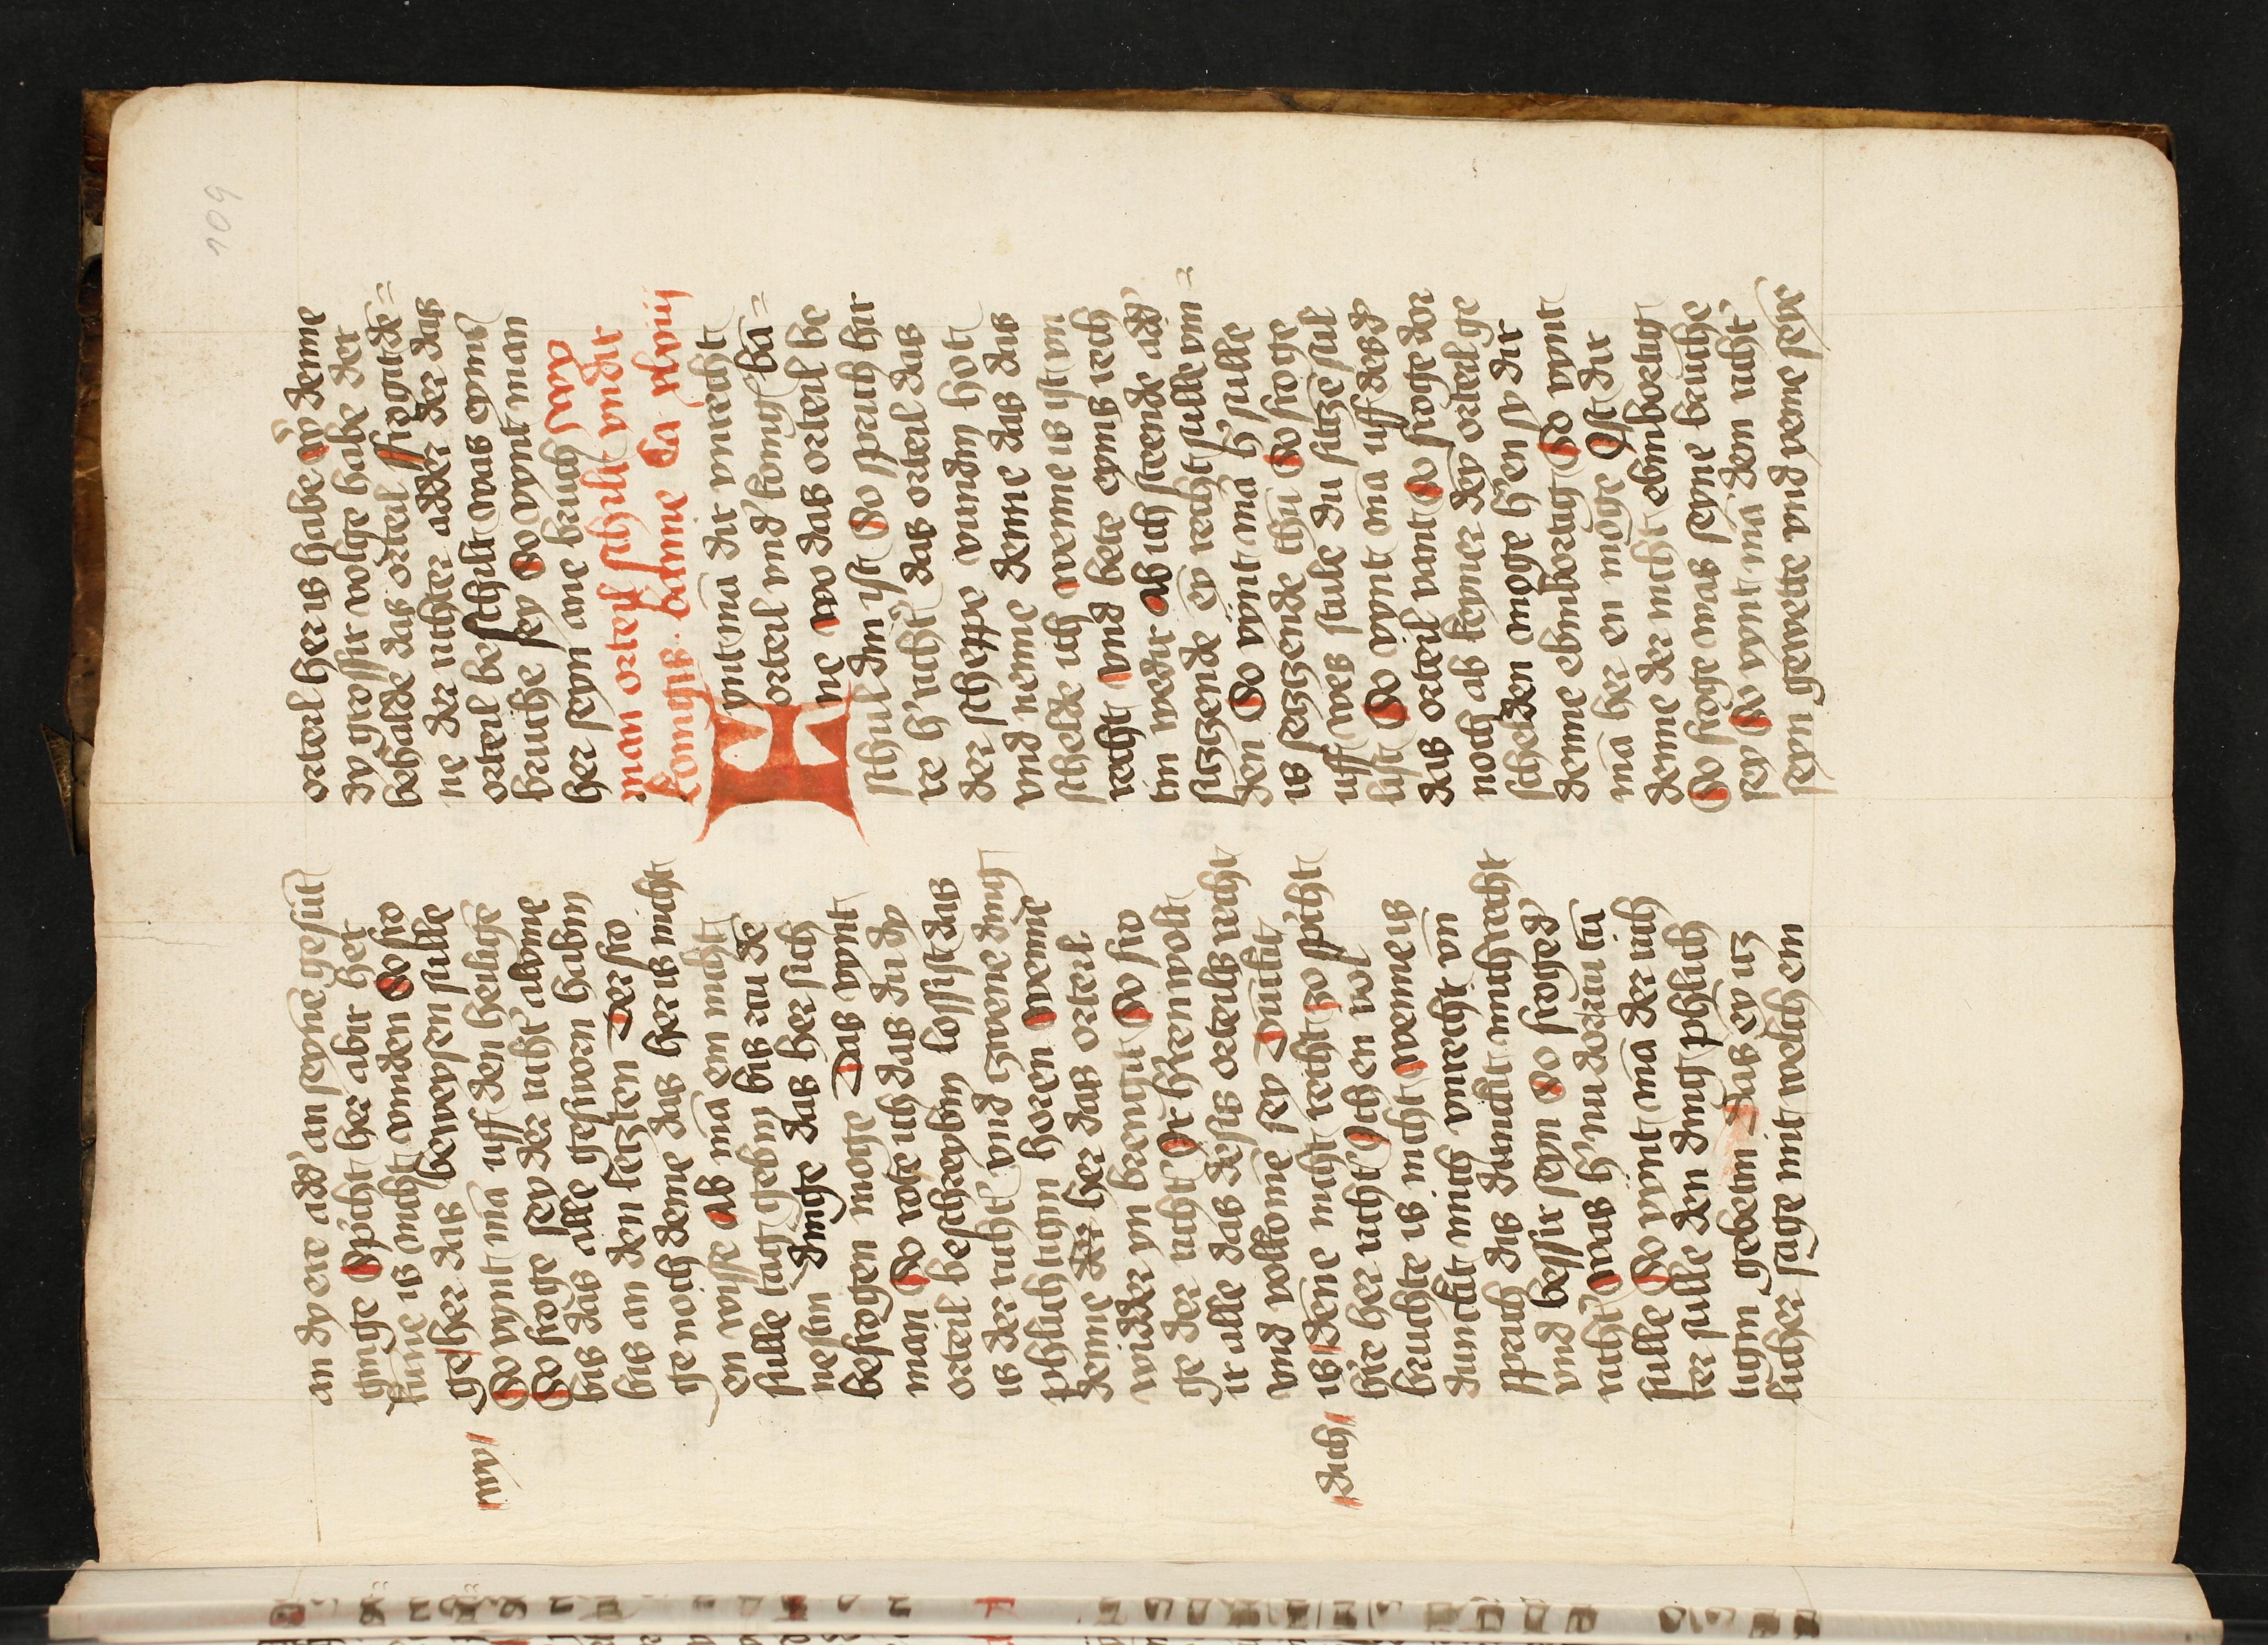 109
an dy ere add' an seyne gesūt
ginge Spīcht her abir her
kūne is nicht vnden So fro
ge her das beweysen sulle
wy
So vynt mā uff den heilige
So froge sey der richt' alvme
bis das alle gesworn habin
bis an den letzten Der fro
ge noch deme das her is nicht
en wisse ab mā em nicht
sulle tag gebin bis zu dē
nestin dinge das her sich
befrogen moge Das vynt
man So rote ich das du dy
orteil beschreybin lossist das
is der richt' vnd tzwene ding
phlichtigin horen wenne
denne der her das orteil
widder yn brengit So fro
ge der richt' Jr h'ren wolt
ir alle das desis orteils recht
vnd volkome sey Dunkit
is denne nicht recht zo spicht
dich
hi'e her richt' Ich en vol
bruchte is nicht wenne is
dunckit mich vnrecht vn
spruch das dunckit mich recht
vnd bessir seyn So froge d'
richt' was h' nu dorzu tū
sulle So vynt mā der rich
ter sulle den ding phlich
tigin gebetin das ey itz
licher sage mit welch em
orteil her is habe dy denne
dy grossir volge habe der
behalde das orteil ffregit dē=
ne der richter adder der das
orteil beschilt was eyns
bruche sey So vynt man
her seyn ane bruch Wy
man orteil schilt vndir
konigis banne Ca xlviij
Vynt mā dir vnrecht
orteil vnd' konig' bā=
ne wo das orteil be
schuldin yst So sprich hir
re h' richt' das orteil das
der scheppe vundin hot
vnd nenne denne das das
schelde ich wenne is ist vn
recht vnd bete eyns rech
tin wedir ab ich steende add'
sitzzende ey recht sulle vin=
den So vynt mā h' sulle
is setzzende thū So froge
uff wes stule du sitzē sul
list So vynt mā uff des d'
das orteil vant So froge dor
noch ab keyner dey orteil ge
schelden moge h' en sy dir
denne ebinbortig So vynt
mā her en moge Ist dir
denne der nicht ebinbortig
So froge was seyne bruche
sey So vynt mā dem richt'
seyn gewette vnd yeme seyn